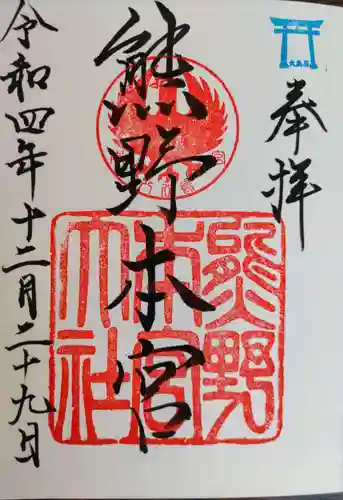 奉拝
大鳥居
熊野本宮
熊野
本宮
大社
令和四年十二月二十九日